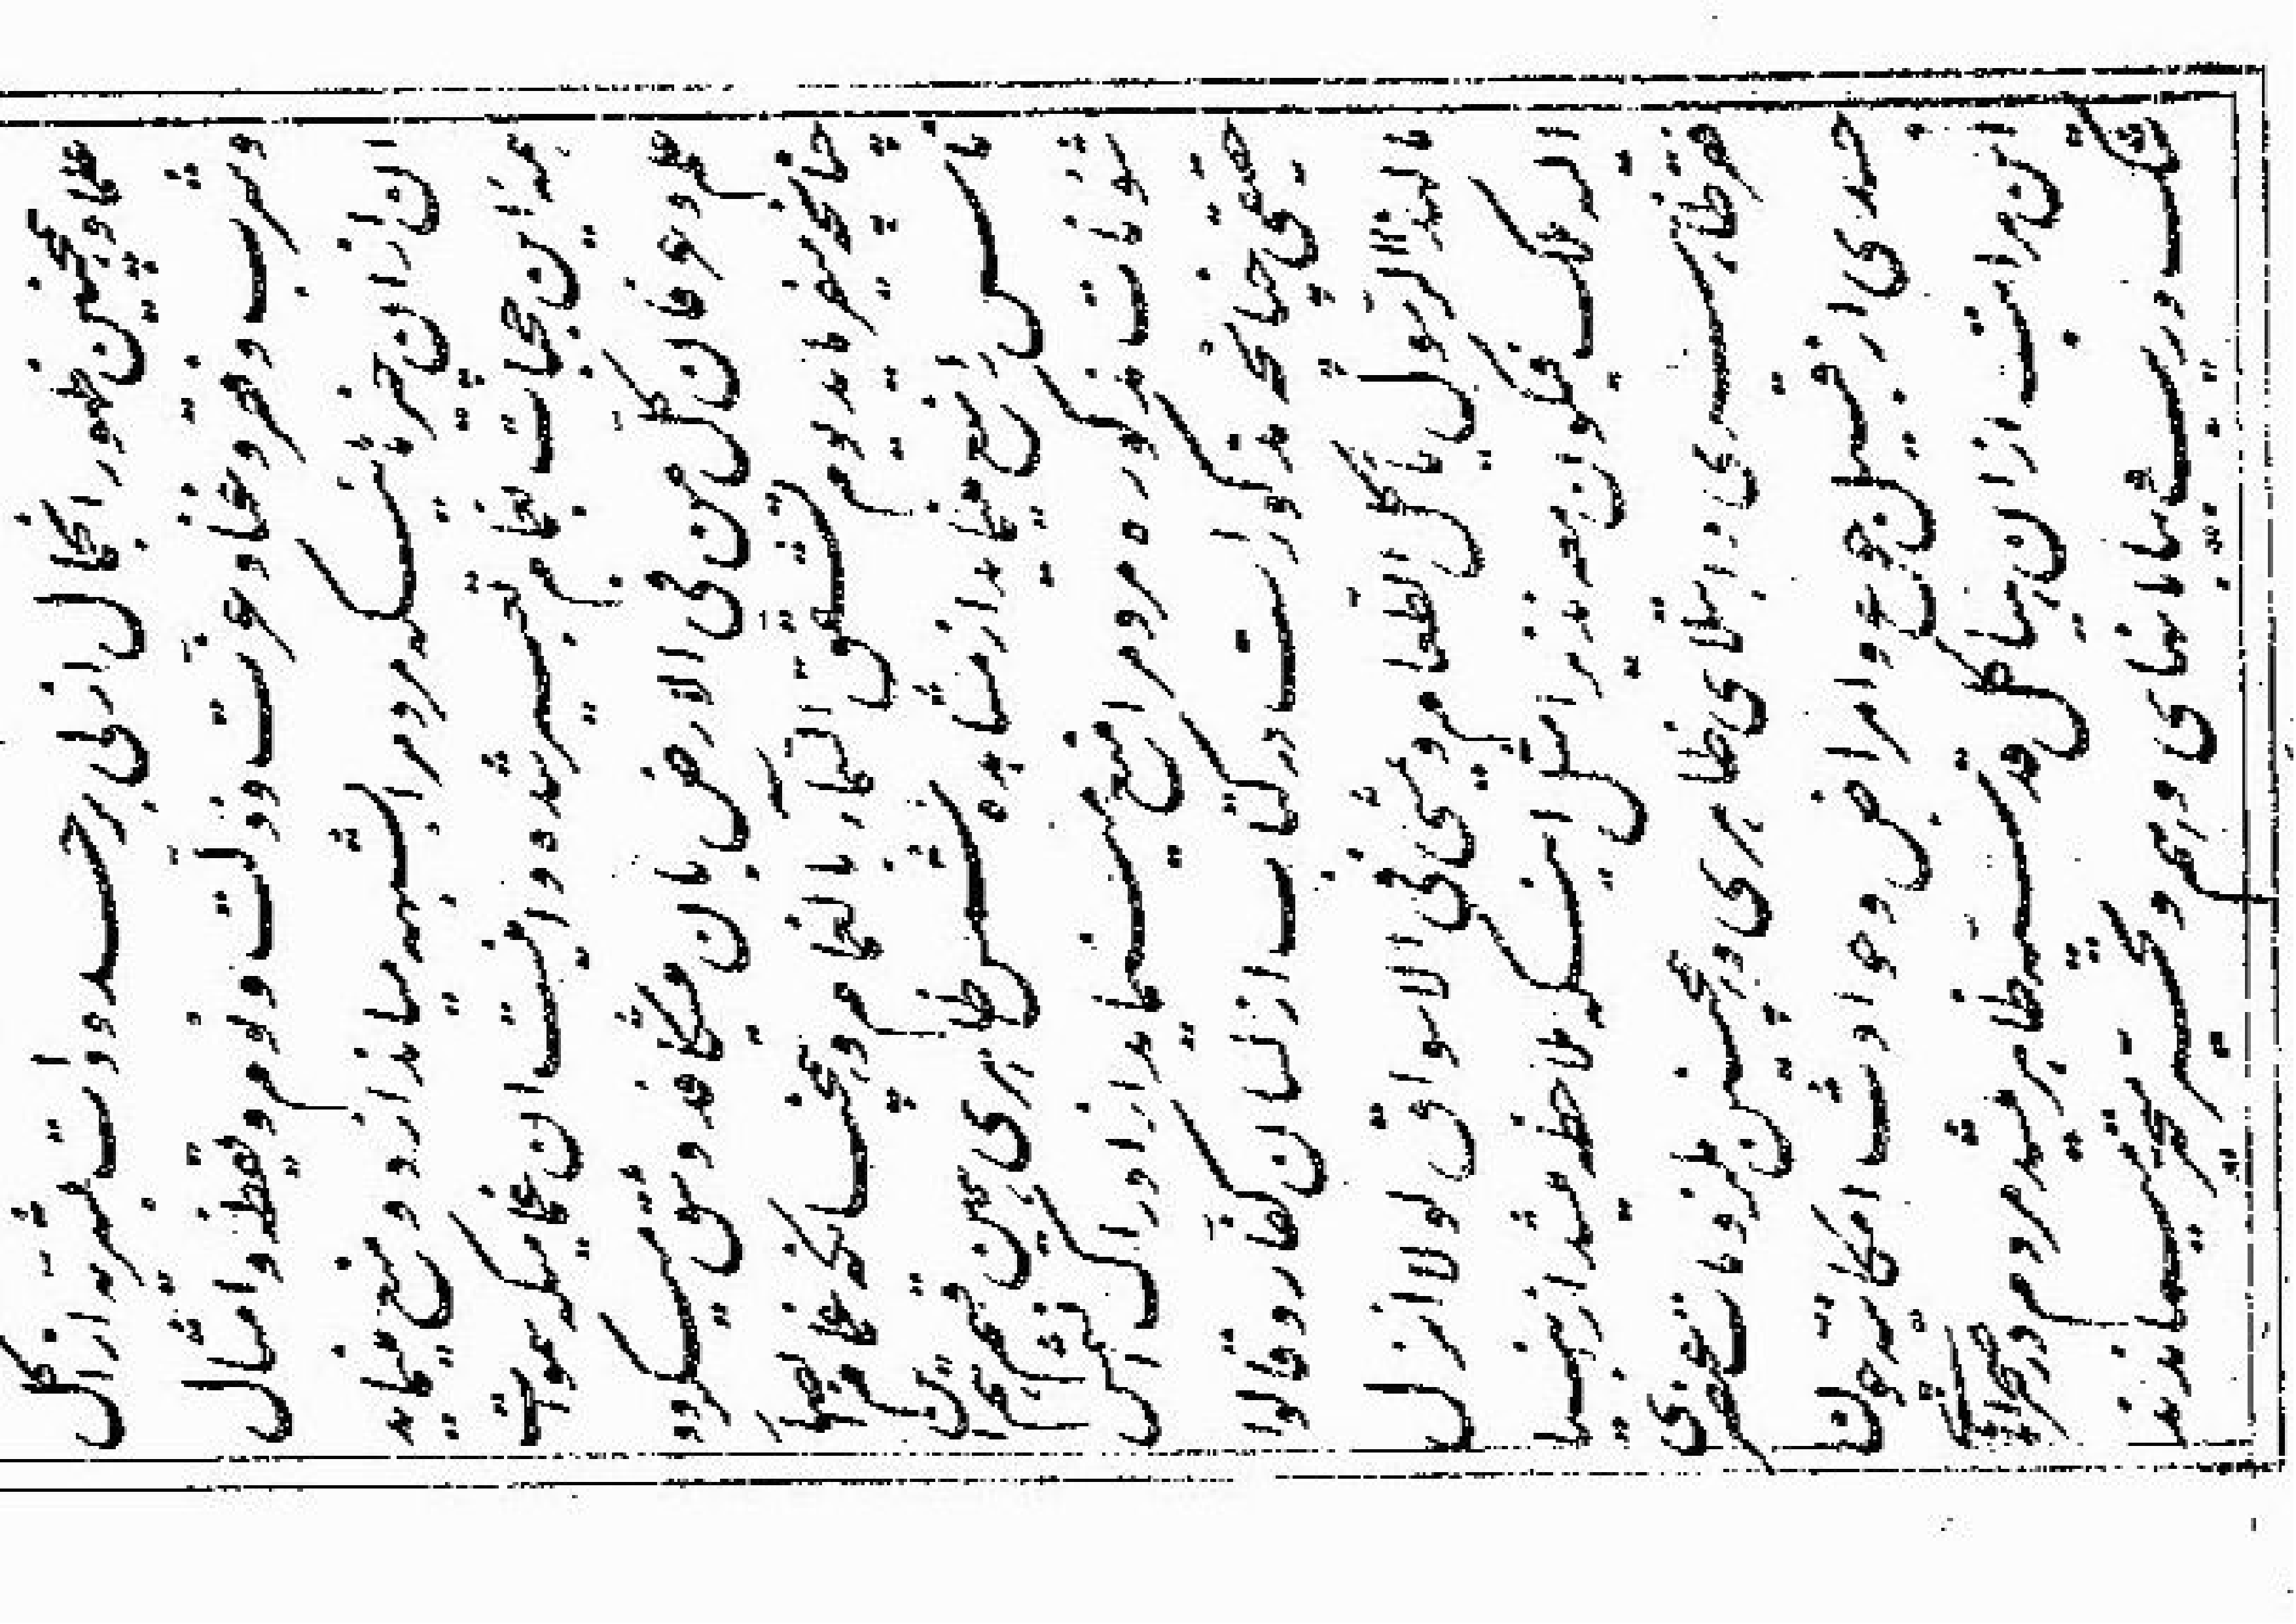 علما و همچنین ظهور ان جمال ازلی بر حدودات بشریه از اکل
و شرب و فقر و غنا و عزت و ذلت و نوم و یقظه و امثال
ان از ان چیزهائیکه مردم را بشبهه میاندازد و منع مینماید
همه این حجبات بغمام تعبیر شده و اینست ان غمامیکه سموات
علم و عرفان کل من فی الارض بان میشکافد و شق میگردد
چنانچه میفرماید یوم تشقق السماء بالغمام و همچنانکه غمام ابصار
ناس را منع مینماید از مشاهده شمس ظاهری همین قسم هم این
شئونات مذکوره مردم را منع مینماید از ادراک ان شمس
حقیقی چنانچه مذکور است در کتاب از لسان کفار و قالوا
ما لهذا الرسول یاکل الطعام و یمشی فی الاسواق لولا انزل
الیه ملک فیکون معه نذیرا مثل اینکه ملاحظه میشد از انبیا
فقر ظاهری و ابتلای ظاهری و همچنین ملزومات عنصری
جسدی از قبیل جوع و امراض و حوادث امکانیه چون
این مراتب از ان هیاکل قدسیه ظاهر میشد مردم در صحراهای
شک و ریب و بیابانهای وهم و تحیر متحیر میماندند